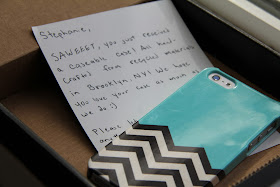 Stephanie,
SAWEEET, you just received
a caseable case! All hand-
crafted from recycled materials
in Brooklyn, NY! We hope
you love your case as much as
we do :)
Please